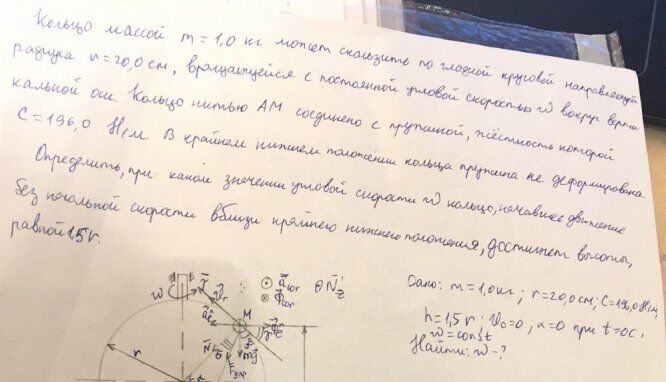 Кольцо массой m = 1,0 кг может скользить по гладкой круговой направляющей
радиуса r = 20,0 см, вращающейся с постоянной угловой скоростью w вокруг верти
кальной оси. Кольцо нитью AM соединено с пружиной, жёсткость которой
C = 196,0 Н/м. В крайнем нижнем положении кольца пружина не деформирована.
Определить, при каком значении угловой скорости w кольцо, начавшее движение
без начальной скорости вблизи крайнего нижнего положения, достигнет высоты,
равной 1,5 r.
Дано: m = 1,0 кг; r = 20,0 см; C = 196,0 Н/м;
h = 1,5 r; V₀ = 0, α = 0 при t = 0 с.
w = const
Найти: w - ?
w
M
r